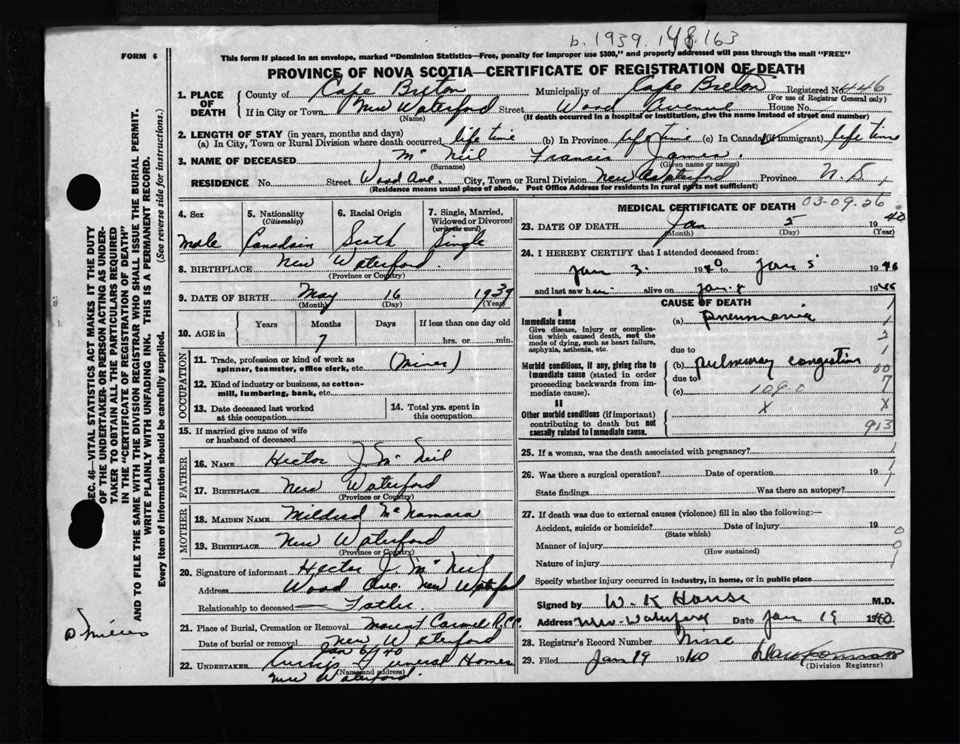 b. 1939. 148.163
FORM 6
This form if placed in an envelope, marked "Dominion Statistics—Free, penalty for improper use $300," and properly addressed will pass through the mail "FREE"
PROVINCE OF NOVA SCOTIA—CERTIFICATE OF REGISTRATION OF DEATH
1. PLACE OF DEATH
County of Cape Breton Municipality of Cape Breton Registered No. 446
(For use of Registrar General only)
If in City or Town New Waterford Street Wood Avenue House No.
(Name) (If death occurred in a hospital or institution, give the name instead of street and number)
2. LENGTH OF STAY (in years, months and days)
(a) In City, Town or Rural Division where death occurred life time (b) In Province life time (c) In Canada (if immigrant) life time
3. NAME OF DECEASED Mc Neil Francis James.
(Surname) (Given name or names)
RESIDENCE No. Street Wood Ave. City, Town or Rural Division New Waterford Province N.S.
(Residence means usual place of abode. Post Office Address for residents in rural parts not sufficient)
4. Sex
Male
5. Nationality
(Citizenship)
Canadain
6. Racial Origin
Scotch
7. Single, Married,
Widowed or Divorced
(write the word)
Single
8. BIRTHPLACE New Waterford.
(Province or Country)
9. DATE OF BIRTH May 16 1939
(Month) (Day) (Year)
10. AGE in
Years
Months
7
Days
If less than one day old
hrs. or min.
OCCUPATION
11. Trade, profession or kind of work as
spinner, teamster, office clerk, etc. (Minor)
12. Kind of industry or business, as cotton-
mill, lumbering, bank, etc.
13. Date deceased last worked
at this occupation
14. Total yrs. spent in
this occupation
15. If married give name of wife
or husband of deceased
FATHER
16. NAME Hector J. Mc Neil
17. BIRTHPLACE New Waterford
(Province or Country)
MOTHER
18. MAIDEN NAME Mildred Mc Namara
19. BIRTHPLACE New Waterford
(Province or Country)
20. Signature of informant Hector J. Mc Neil
Address Wood Ave. New Waterford
Relationship to deceased Father.
21. Place of Burial, Cremation or Removal Mount Carmel
New Waterford
Date of burial or removal Jan 6/40
22. UNDERTAKER Curry's Funeral Home
(Name and address)
New Waterford.
MEDICAL CERTIFICATE OF DEATH 03-09.26
23. DATE OF DEATH Jan 5 1940
(Month) (Day) (Year)
24. I HEREBY CERTIFY that I attended deceased from:
Jan 3. 1940 to Jan 5 1940
and last saw him alive on Jan. 1940
CAUSE OF DEATH
I
Immediate cause
Give disease, injury or complica-
tion which caused death, not the
mode of dying, such as heart failure,
asphyxia, asthenia, etc.
(a) Pneumonia
due to
Morbid conditions, if any, giving rise to
immediate cause (stated in order
proceeding backwards from im-
mediate cause).
(b) pulmonary congestion
due to
(c) 109-0
II
Other morbid conditions (if important)
contributing to death but not
causally related to immediate cause.
X X
1
2
1
00
7
913
25. If a woman, was the death associated with pregnancy?
26. Was there a surgical operation? Date of operation 19
State findings Was there an autopsy?
27. If death was due to external causes (violence) fill in also the following:—
Accident, suicide or homicide? Date of injury 19
(State which)
Manner of injury
(How sustained)
Nature of injury
Specify whether injury occurred in industry, in home, or in public place
Signed by W. K House M.D.
Address New Waterford Date Jan 19 1940
28. Registrar's Record Number Nine
29. Filed Jan 19 1940
(Division Registrar)
SEC. 46—VITAL STATISTICS ACT MAKES IT THE DUTY
OF THE UNDERTAKER OR PERSON ACTING AS UNDER-
TAKER TO OBTAIN ALL THE PARTICULARS REQUIRED
IN THE "CERTIFICATE OF REGISTRATION OF DEATH"
AND TO FILE THE SAME WITH THE DIVISION REGISTRAR WHO SHALL ISSUE THE BURIAL PERMIT.
WRITE PLAINLY WITH UNFADING INK. THIS IS A PERMANENT RECORD.
Every item of Information should be carefully supplied. (See reverse side for instructions.)